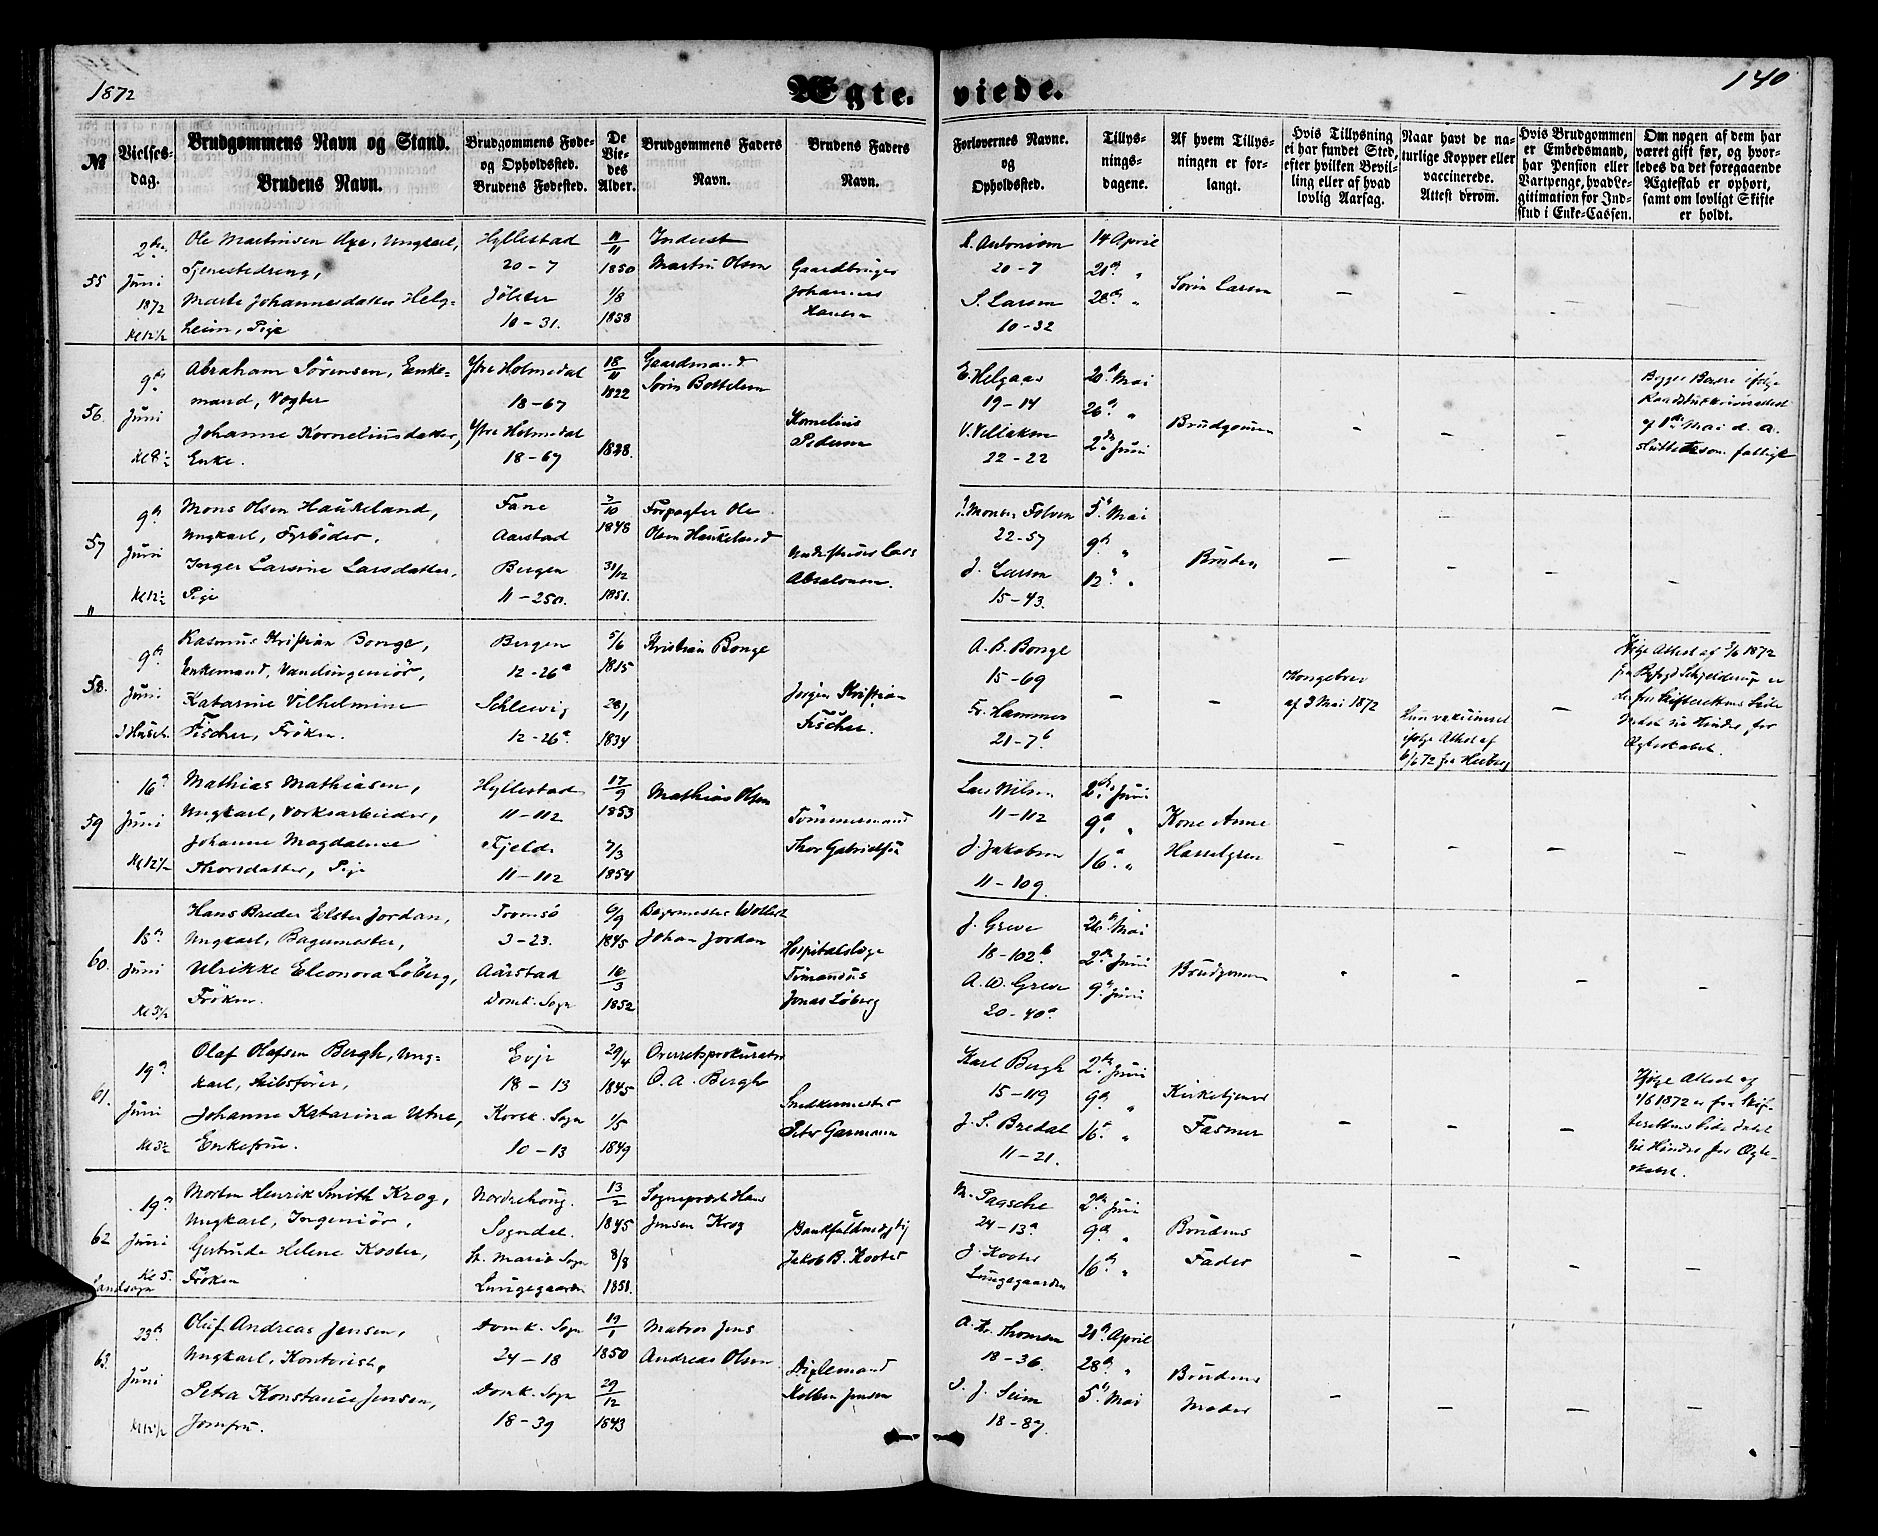 1872
Ægte-
viede.
140
№
Vielses-
dag.
Brudgommens Navn og Stand.
Brudens Navn.
Brudgommens Føde-
og Opholdssted.
Brudens Fødested.
De
Vie-
des
Alder.
Brudgommens Faders
Navn.
Brudens Faders
Navn.
Forlovernes Navne.
og
Opholdssted.
Tillys-
nings-
dagene.
Af hvem Tillys-
ningen er for-
langt.
Hvis Tillysning
ei har fundet Sted,
efter hvilken Bevil-
ling eller af hvad
lovlig Aarsag.
Naar havt de na-
turlige Kopper eller
vaccinerede.
Attest derom.
Hvis Brudgommen
er Embedsmand,
har Pension eller
Vartpenge, hvad Le-
gitimation for Ind-
skud i Enke-Cassen.
Om nogen af dem har
været gift før, og hvor-
ledes da det foregaaende
Ægteskab er ophørt,
samt om lovligt Skifte
er holdt.
55
2den
Juni
1872
Kl 12½
Ole Martinsen Øxe, Ungkarl,
Tjenestedreng,
Marte Johannesdatter Helg-
heim, Pige
Hyllestad
20-7
Jølster
10-31.
11/11
1850
1/8
1838
Inderst
Martin Olsen
Gaardbruger
Johannes
Hansen
S. Antonisen
20-7
S. Larsen
10-32
14 April
21de "
28de "
Søren Larsen
56.
9de
Juni
Abraham Sørensen, Enke-
mand, Vogter
Johanne Korneliusdatter,
Enke.
Ytre Holmedal
18-67
Ytre Holmedal
18-67
18/11
1822
1828.
Gaardmand
Søren Bottelsen
Kornelius
Pedersen
E. Helgaas
19-14
V. Villaksen
22-22
20de Mai
26de "
2den Juni
Brudgommen
57
9de
Juni
Kl 12½
Mons Olsen Haukeland,
Ungkarl, Fyrbøder,
Inger Larsine Larsdatter,
Pige
Fane
Aarstad
Bergen
11-250.
7/10
1848
31/12
1851.
Forpagter Ole
Olsen Haukeland
Abrahamsen.
J. Monsen Folven
22-57
J. Larsen
15-43.
5te Mai
9de "
12te "
Bruden
58.
9de
Juni
I Huset.
Rasmus Kristian Bonge,
Enkemand, Vandingeniør,
Katarine Vilhelmine
Fischer, Frøken.
Bergen
12-26a
Schleswig
12-26a.
5/6
1815
28/1
1834
Kristian Bonge
Jørgen Kristian
Fischer.
A. B. Bonge
15-69
Fr. Hammer
21-7b
Kongebrev
af 3 Mai 1872
Hun vakcineret
ifølge Attest af
6/6 72 fra Heiberg
Ifølge Attest af 7/6 1872
fra Byfogd Schjelderup er
der fra Skifterettens Side
Intet til Hinder for
Ægteskabet.
59
16de
Juni
Kl 12½
Mathias Mathiasen,
Ungkarl, Værksarbeider,
Johanne Magdalene
Thorsdatter, Pige
Hyllestad
11-112
Fjeld
11-112
17/9
1853
7/3
1854
Mathias Olsen
Tømmermand
Thor Gabrielsen
Lars Nilsen
11-112
J. Jakobsen
11-109.
2den Juni
9de "
16de "
Kone Anne
Hasselgren
60.
15de
Juni
Kl 3½
Hans Breder Elster Jordan,
Ungkarl, Bagermester,
Ulrikke Eleonora Løberg,
Frøken.
Tromsø
3-23.
Aarstad
Domk. Sogn
6/9
1845
16/3
1852
Bagermester Wollert
Johan Jordan
Hospitalslæge
Timandus
Jonas Løberg
J. Greve
18-102b.
A. W. Greve
20-40a
26de Mai
2den Juni
9de Juni
Brudgommen
61.
19de
Juni
Kl 3½
Olaf Olafsen Bergh, Ung-
karl, Skibsfører,
Johanne Katarina Utne,
Enkefrue.
Evje
18-13
Korsk. Sogn
10-13
29/4
1845
1/5
1849
Overretsprokurator
O. A. Bergh
Snedkermester
Peter Garmann
Karl Bergh
15-119
J. S. Bredal
11-21.
2den Juni
9de "
16de "
Kirketjener
Fasmer
Ifølge Attest af
1/6 1872 er fra Skif-
terettens Side Intet
til Hinder for Ægte-
skabet.
62
19de
Juni
Kl 5.
Landsogn
Morten Henrik Smith Krog,
Ungkarl, Ingeniør,
Gertrude Helene Koster,
Frøken
Nordrehoug.
Sogndal.
St. Marie Sogn
Lungegaarden
13/2
1845
8/8
1851.
Sogneprest Hans
Jensen Krog
Bankfuldmægtig
Jakob B. Koster
M. Pagsche
24-13a
J. Koster
Lungegaarden
2den Juni
9de "
16de "
Brudens
Fader
63.
23de
Juni
Kl 12½
Oluf Andreas Jensen,
Ungkarl, Kontorist,
Petra Konstance Jensen,
Jomfru.
Domk. Sogn
24-18
Domk. Sogn
18-39
19/1
1850
29/12
1843
Matros Jens
Andreas Olsen
Kolben Jensen
A. Kr. Thomsen
18-36.
J. J. Seim
18-87.
21de April
28de "
5te Mai
Brudens
Moder